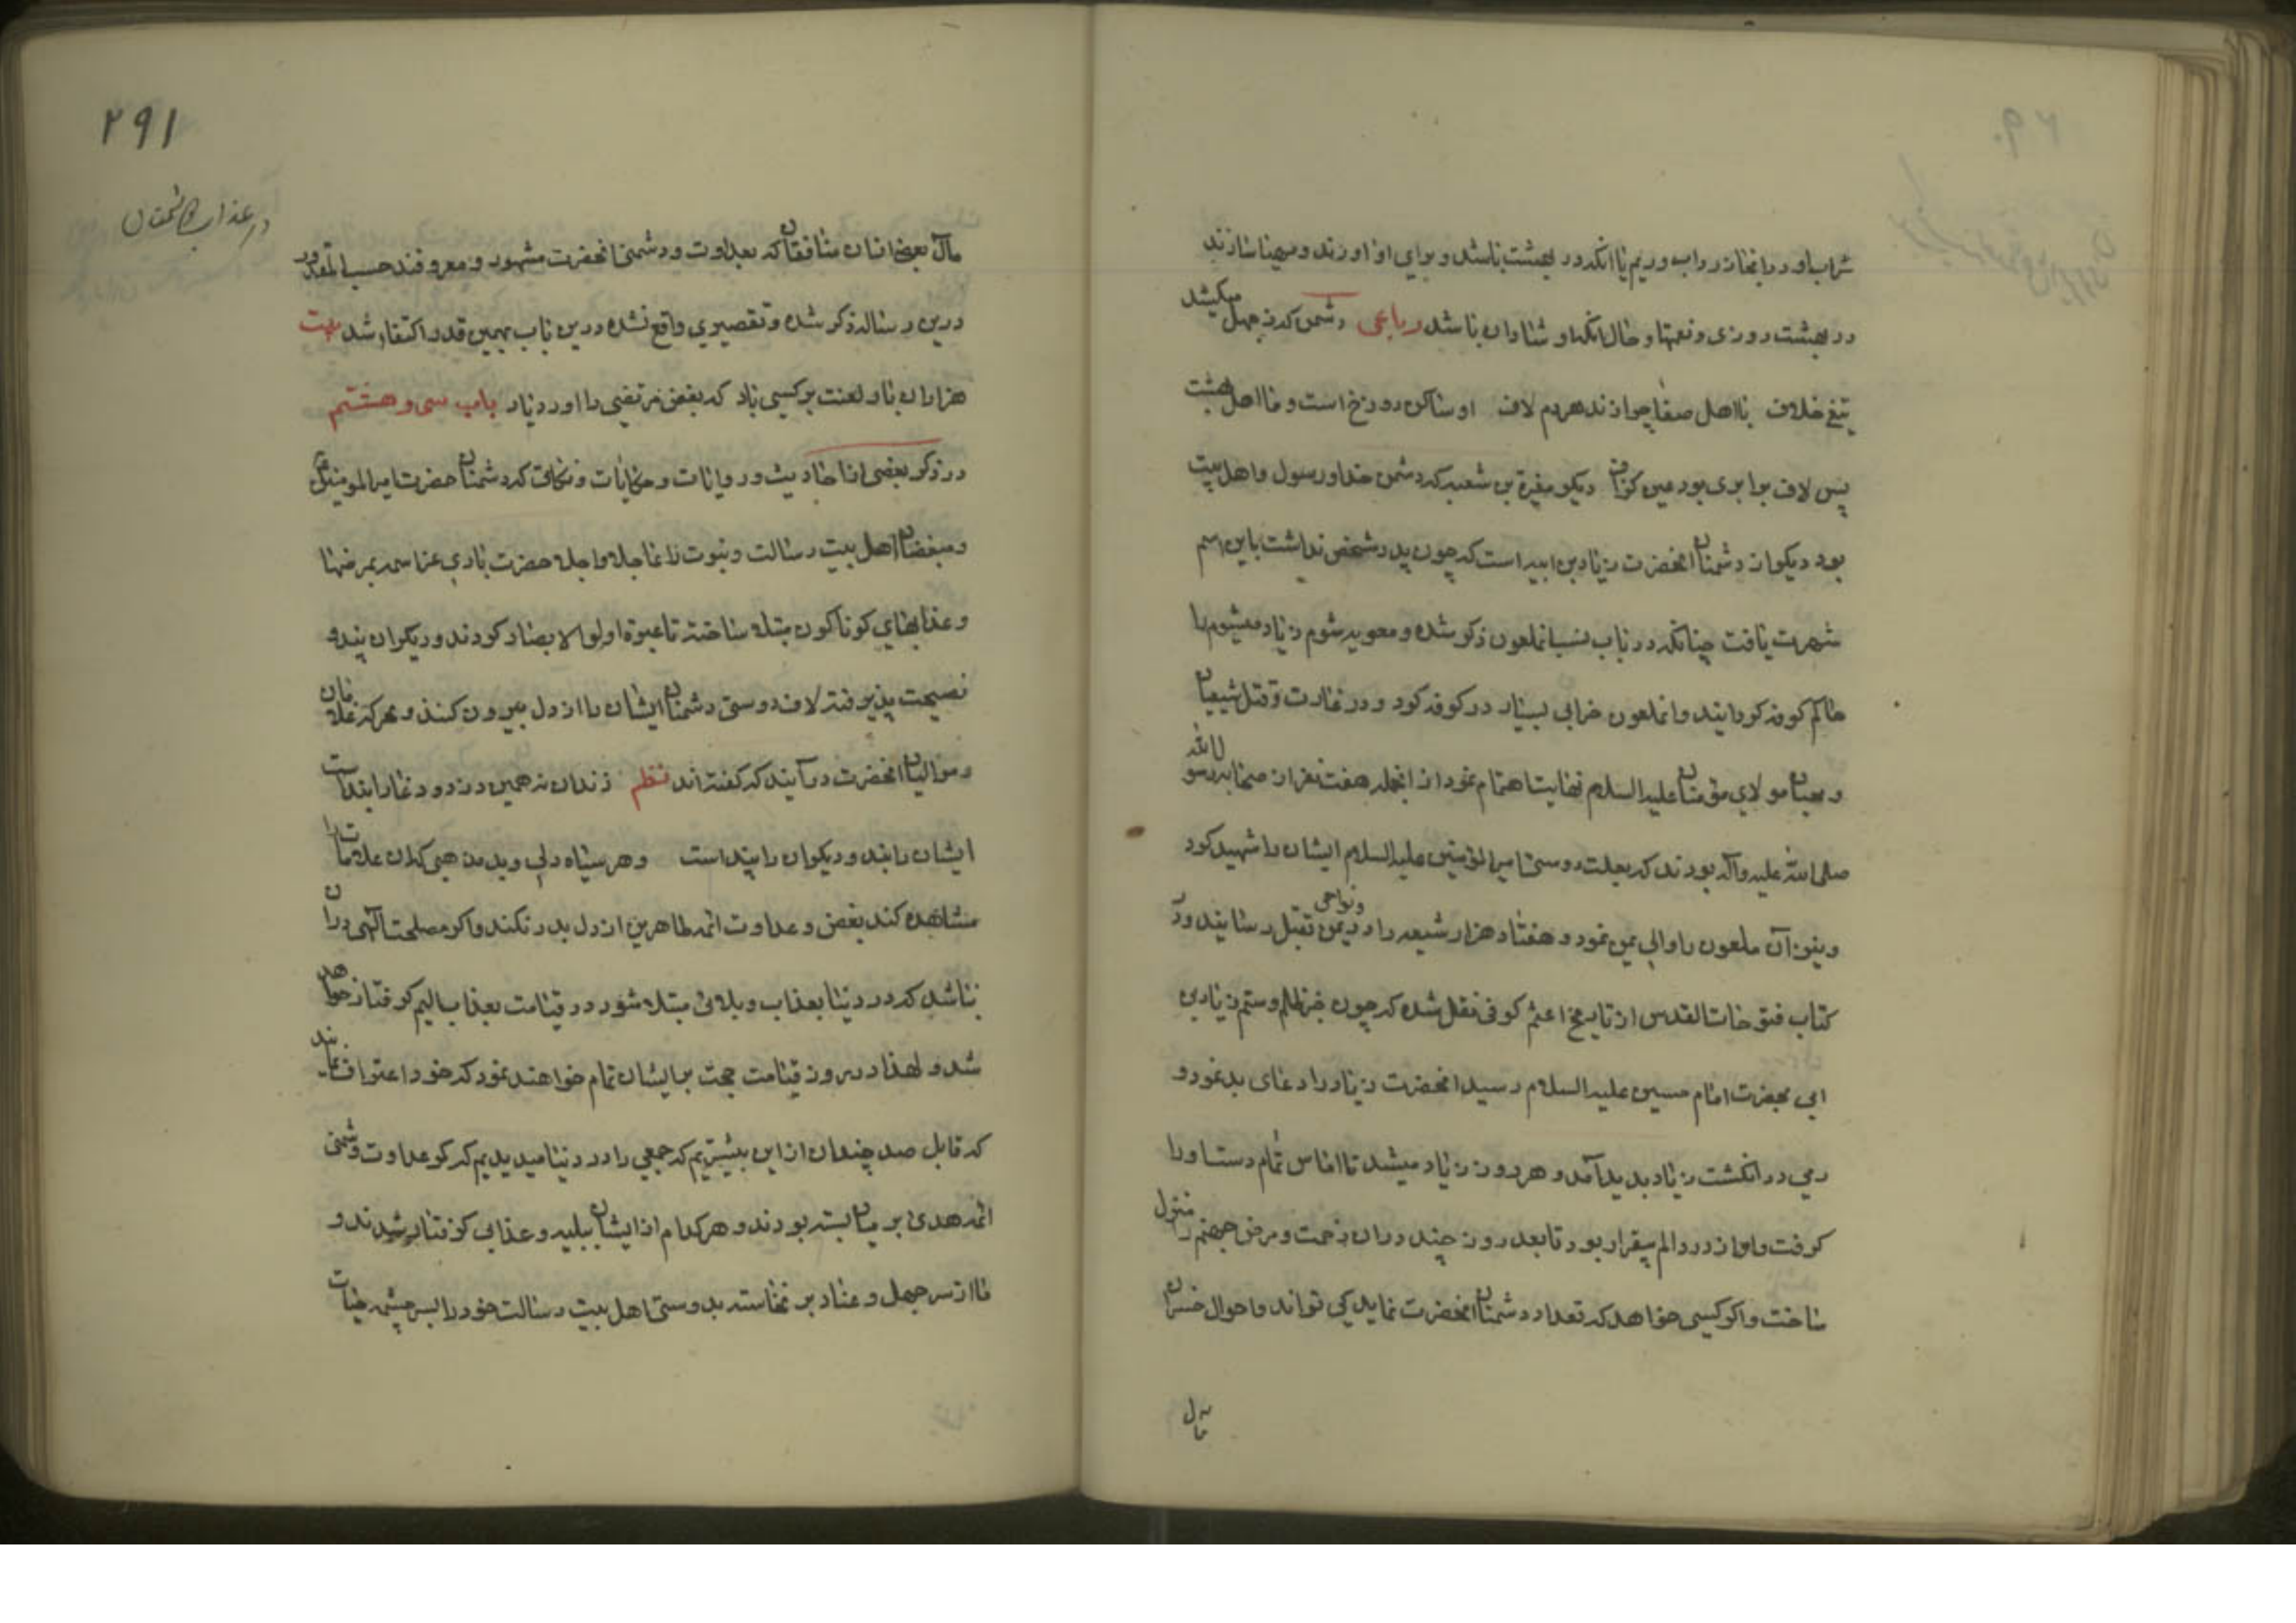 شراب او در انجا زرداب و ریم یا انکه در بهشت باشد و برای او اورند و مهیا سازند
در بهشت روزی و نعمتها و حال انکه او شادان باشد رباعی دشمن که ز جهل میکشد
تیغ خلاف با اهل صفا چرا زند هردم لاف او ساکن دوزخ است و ما اهل بهشت
پس لاف برابری بود عین کزاف دیکر مغیرة بن شعبه که دشمن خدا و رسول و اهل بیت
بود دیکر از دشمنان انحضرت زیاد بن ابیه است که چون پدر مشخص نداشت باین اسم
شهرت یافت چنانکه در باب نسب انملعون ذکر شده و معویه شوم زیاد میشوم را
حاکم کوفه کردانید و انملعون خرابی بسیار در کوفه کرد و در غارت و قتل شیعیان
و محبان مولای مؤمنان علیه السلام نهایت اهتمام نمود از انجمله هفت نفر از صحابه رسول الله
صلی الله علیه واله بودند که بعلت دوستی امیرالمؤمنین علیه السلام ایشان را شهید کرد
و نیز آن ملعون را والی یمن نمود و هفتاد هزار شیعه را در یمن و نواحی بقتل رسانید و در
کتاب فتوحات القدس از تاریخ اعثم کوفی نقل شده که چون خبر ظلم و ستم زیاد بن
ابی بحضرت امام حسین علیه السلام رسید انحضرت زیاد را دعای بد نمود و
رمی در انکشت زیاد بدید آمد و هر روز زیاد میشد تا اماس تمام دست او را
کرفت و او از درد و الم بیقرار بود تا بعد روز چند در ان زحمت و مرض جهنم را منزل
ساخت و اکر کسی خواهد که تعداد دشمنان انحضرت نماید کی تواند و احوال خسران
مآل
۲۹۱
در عذاب دشمنان
مآل بعضی از ان منافقان که بعداوت و دشمنی انحضرت مشهور و معروفند حسب المقدور
درین رساله ذکر شده و تقصیری واقع نشده درین باب بهمین قدر اکتفا شد بیت
هزاران بار لعنت بر کسی باد که بغض مرتضی را اورد یاد باب سی و هشتم
در ذکر بعضی از احادیث و روایات و حکایات و نکاتی که دشمنان حضرت امیرالمومنین
و مبغضان اهل بیت رسالت و نبوت را عاجلا و اجلا حضرت باری عز اسمه بمرضها
و عذابهای کوناکون مبتلا ساخته تا عبرة اولوالابصار کردند و دیکران پند و
نصیحت پذیرفته لاف دوستی دشمنان ایشان را از دل بیرون کنند و هر که غلامان
و موالیان انحضرت درآیند که کفته اند نظم زندان نه همین دزد و دغا را بند است
ایشان را بند و دیکران را پند است و هر سیاه دلی و بد مذهبی که این علامات را
مشاهده کند بغض و عداوت ائمه طاهرین از دل بدر نکند و اکر مصلحت الهی در ان
نباشد که در دنیا بعذاب و بلائی مبتلا شود در قیامت بعذاب الیم کرفتار خواهد
شد و لهذا در روز قیامت حجت بر ایشان تمام خواهند نمود که خود اعتراف نمایند
که قابل صد چندان از این بیشتریم که جمعی را در دنیا میدیدیم که کمر عداوت و دشمنی
ائمه هدی بر میان بسته بودند و هر کدام از ایشان ببلیه و عذابی کرفتار شدند و
ما از سر جهل و عناد بر نخاسته بدوستی اهل بیت رسالت خود را بسرچشمه حیات